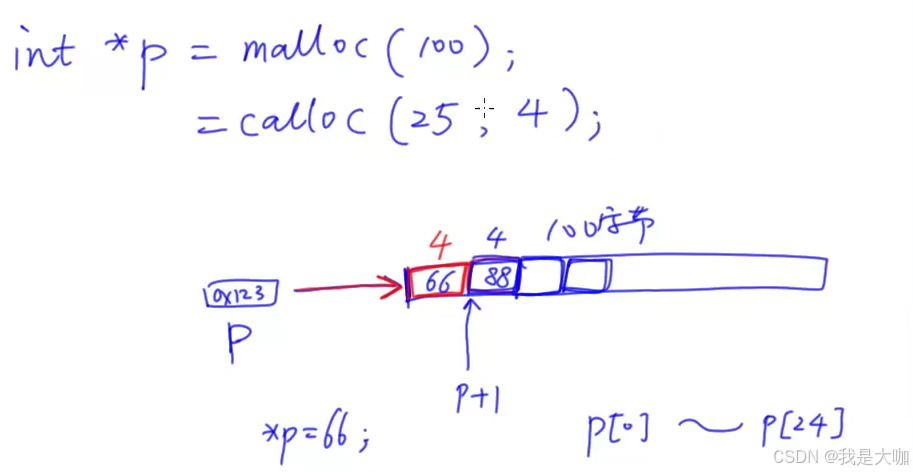 int *p = malloc(100);
= calloc(25, 4);
4 4 100字节
66 88
0x123
p
p+1
*p=66;
p[0] ～ p[24]
CSDN @我是大咖